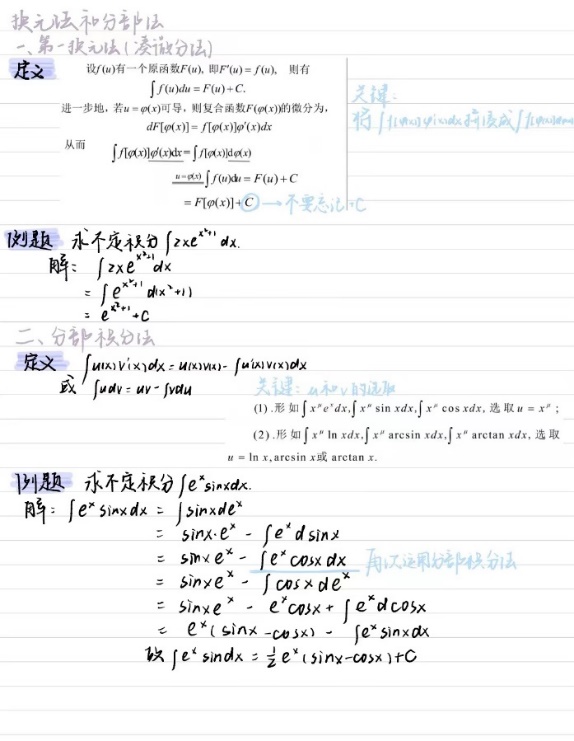 换元法和分部法
一、第一换元法(凑微分法)
定义
设f(u)有一个原函数F(u), 即F'(u) = f(u), 则有
∫f(u)du = F(u) + C.
进一步地, 若u = φ(x)可导, 则复合函数F(φ(x))的微分为,
dF[φ(x)] = f[φ(x)]φ'(x)dx
从而 ∫f[φ(x)]φ'(x)dx = ∫f[φ(x)]dφ(x)
u=φ(x) ∫f(u)du = F(u) + C
= F[φ(x)] + C → 不要忘记+C
关键:
将∫f[φ(x)]φ'(x)dx拼凑成
例题 求不定积分∫2xe^{x²+1}dx.
解: ∫2xe^{x²+1}dx
= ∫e^{x²+1}d(x²+1)
= e^{x²+1}+C
二、分部积分法
定义 ∫u(x)v'(x)dx = u(x)v(x) - ∫u'(x)v(x)dx
或 ∫udv = uv - ∫vdu
关键: u和v的选取
(1).形如∫xⁿeˣdx,∫xⁿ sin xdx,∫xⁿ cos xdx, 选取u = xⁿ;
(2).形如∫xⁿ ln xdx,∫xⁿ arcsin xdx,∫xⁿ arctan xdx, 选取
u = ln x, arcsin x或 arctan x.
例题 求不定积分∫eˣsinxdx.
解: ∫eˣsinxdx = ∫sinxdeˣ
= sinx·eˣ - ∫eˣdsinx
= sinxeˣ - ∫eˣcosxdx 再次运用分部积分法
= sinxeˣ - ∫cosxdeˣ
= sinxeˣ - eˣcosx + ∫eˣdcosx
= eˣ(sinx-cosx) - ∫eˣsinxdx
故∫eˣsindx = ½eˣ(sinx-cosx)+C